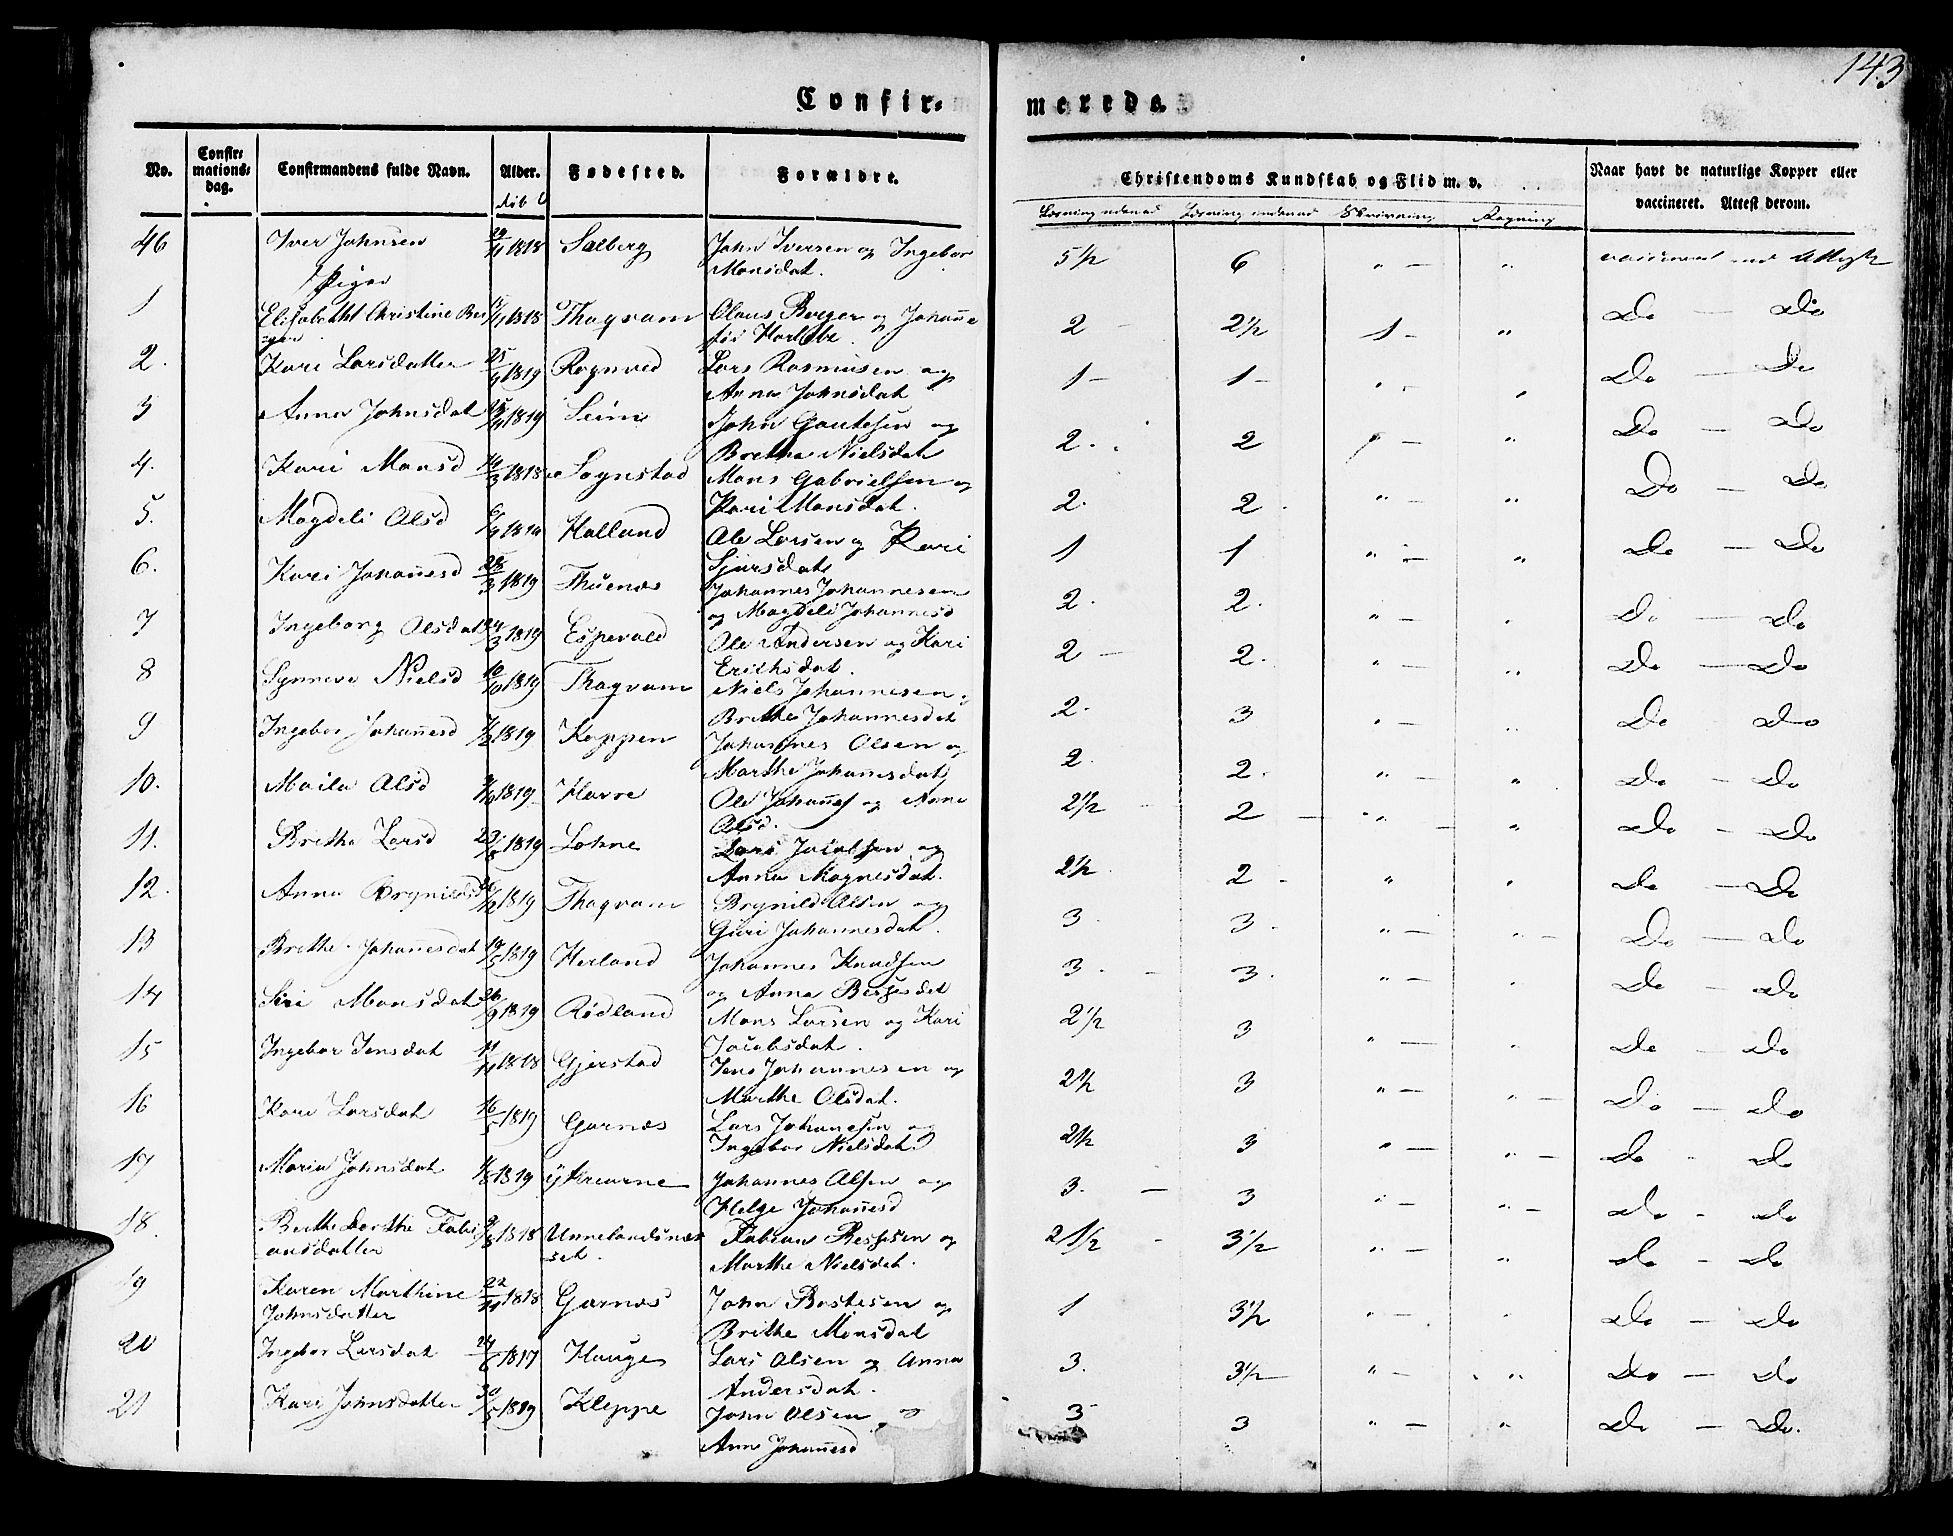 143
Confir-
meredе.
No.
Confir-
mations-
dag.
Confirmandens fulde Navn.
Alder.
Fødested.
Forældre.
Christendoms Kundskab og Flid m. v.
Naar havt de naturlige Kopper eller
vaccineret. Attest derom.
Læsning udenad Læsning indenad Skrivning Regning
46 Iver Johnsen 1818 Salberg John Iversen og Ingebor 5½ 6 " — " vaccineret med Attest
Monsdat.
Piger
1 Elisabetht Christine Ber 1818 Thaqvam Claus Berger og Johanne 2 – 2½ 1 – " Do — Do
ger
2. Kari Larsdatter 25/9 1819 Rognved Lars Rasmusen og 1 – 1 – " – " Do — Do
Anna Johnsdat
3 Anna Johnsdat 1819 Seim John Gautesen og 2. 2 " — " Do — Do
Brethe Nielsdat
4. Kari Monsd 1818 Sognstad Mons Gabrielsen og 2. 2 " — " Do — Do
Kari Monsdat.
5. Magdeli Olsd Halland Ole Larsen og Kari 1 1 " — " Do — Do
Sjursdat
6. Kari Johannesd 28/3 1819 Thuenæs Johannes Johannesen 2. 2. " — " Do — Do
og Magdeli Johannesd
7 Ingeborg Olsdat 24/3 1819 Espevold Ole Andersen og Kari 2 — 2. " — " Do — Do
Erichsdat.
8 Synneve Nielsd 10/10 1819 Thaqvam Niels Johannesen 2. 3 " — " Do Do
Brithe Johannesdat
9 Ingebor Johannesd 1819 Koppen Johannes Olsen og 2. 2. " — " Do — Do
Marthe Johannesdat
10. Maila Olsd 1819 Harre Ole Johannes og Anna 2½ 2 — " — " Do — Do
Olsd.
11. Brithe Larsd 1819 Lohne Lars Jacobsen og 2½ 2 – " " Do — Do
Anna Magnesdat.
12. Anna Brynildsd 1819 Thaqvam Brynild Olsen og 3. 3. " — " — Do — Do
Guri Johannesdat.
13 Brithe Johannesdat 19/5 1819 Herland Johannes Knudsen 3. — 3. " — " Do — Do
og Anna Bessesdat
14 Siri Monsdat 26/9 1819 Rødland Mons Larsen og Kari 2½ 3 " — " Do — Do
Jacobsdat.
15 Ingebor Jensdat 11/11 1818 Gjerstad Jens Johannesen og 2½ 3 " — " — Do — Do
Marthe Olsdat.
16 Kari Larsdat 16/5 1819 Garnæs Lars Johanesen og 2½ 3 " — " — Do – Do
Ingebor Nielsdat
17 Maria Johnsdat 1819 Johannes Olsen og 3. — 3 " — " — Do – Do
Helge Johannesd
18. Brithe Dorthe Fabi 1818 Unnelandsnæs Fabian Bessesen og 2½ – 3½ " — " Do – Do
ansdatter set. Marthe Nielsdat.
19 Karen Marthine 22/11 1818 Garnæs John Bostesen og 1 3½ " – " Do — Do
Johnsdatter Brithe Monsdat
20 Ingebor Larsdat 24/6 1817 Hauge Lars Olsen og Anna 3. 3½ " — " Do — Do
Andersdat.
21 Kari Johnsdatter 30/5 1819 Kleppe John Olsen og 3 3 " — " Do — Do.
Anna Johannesd